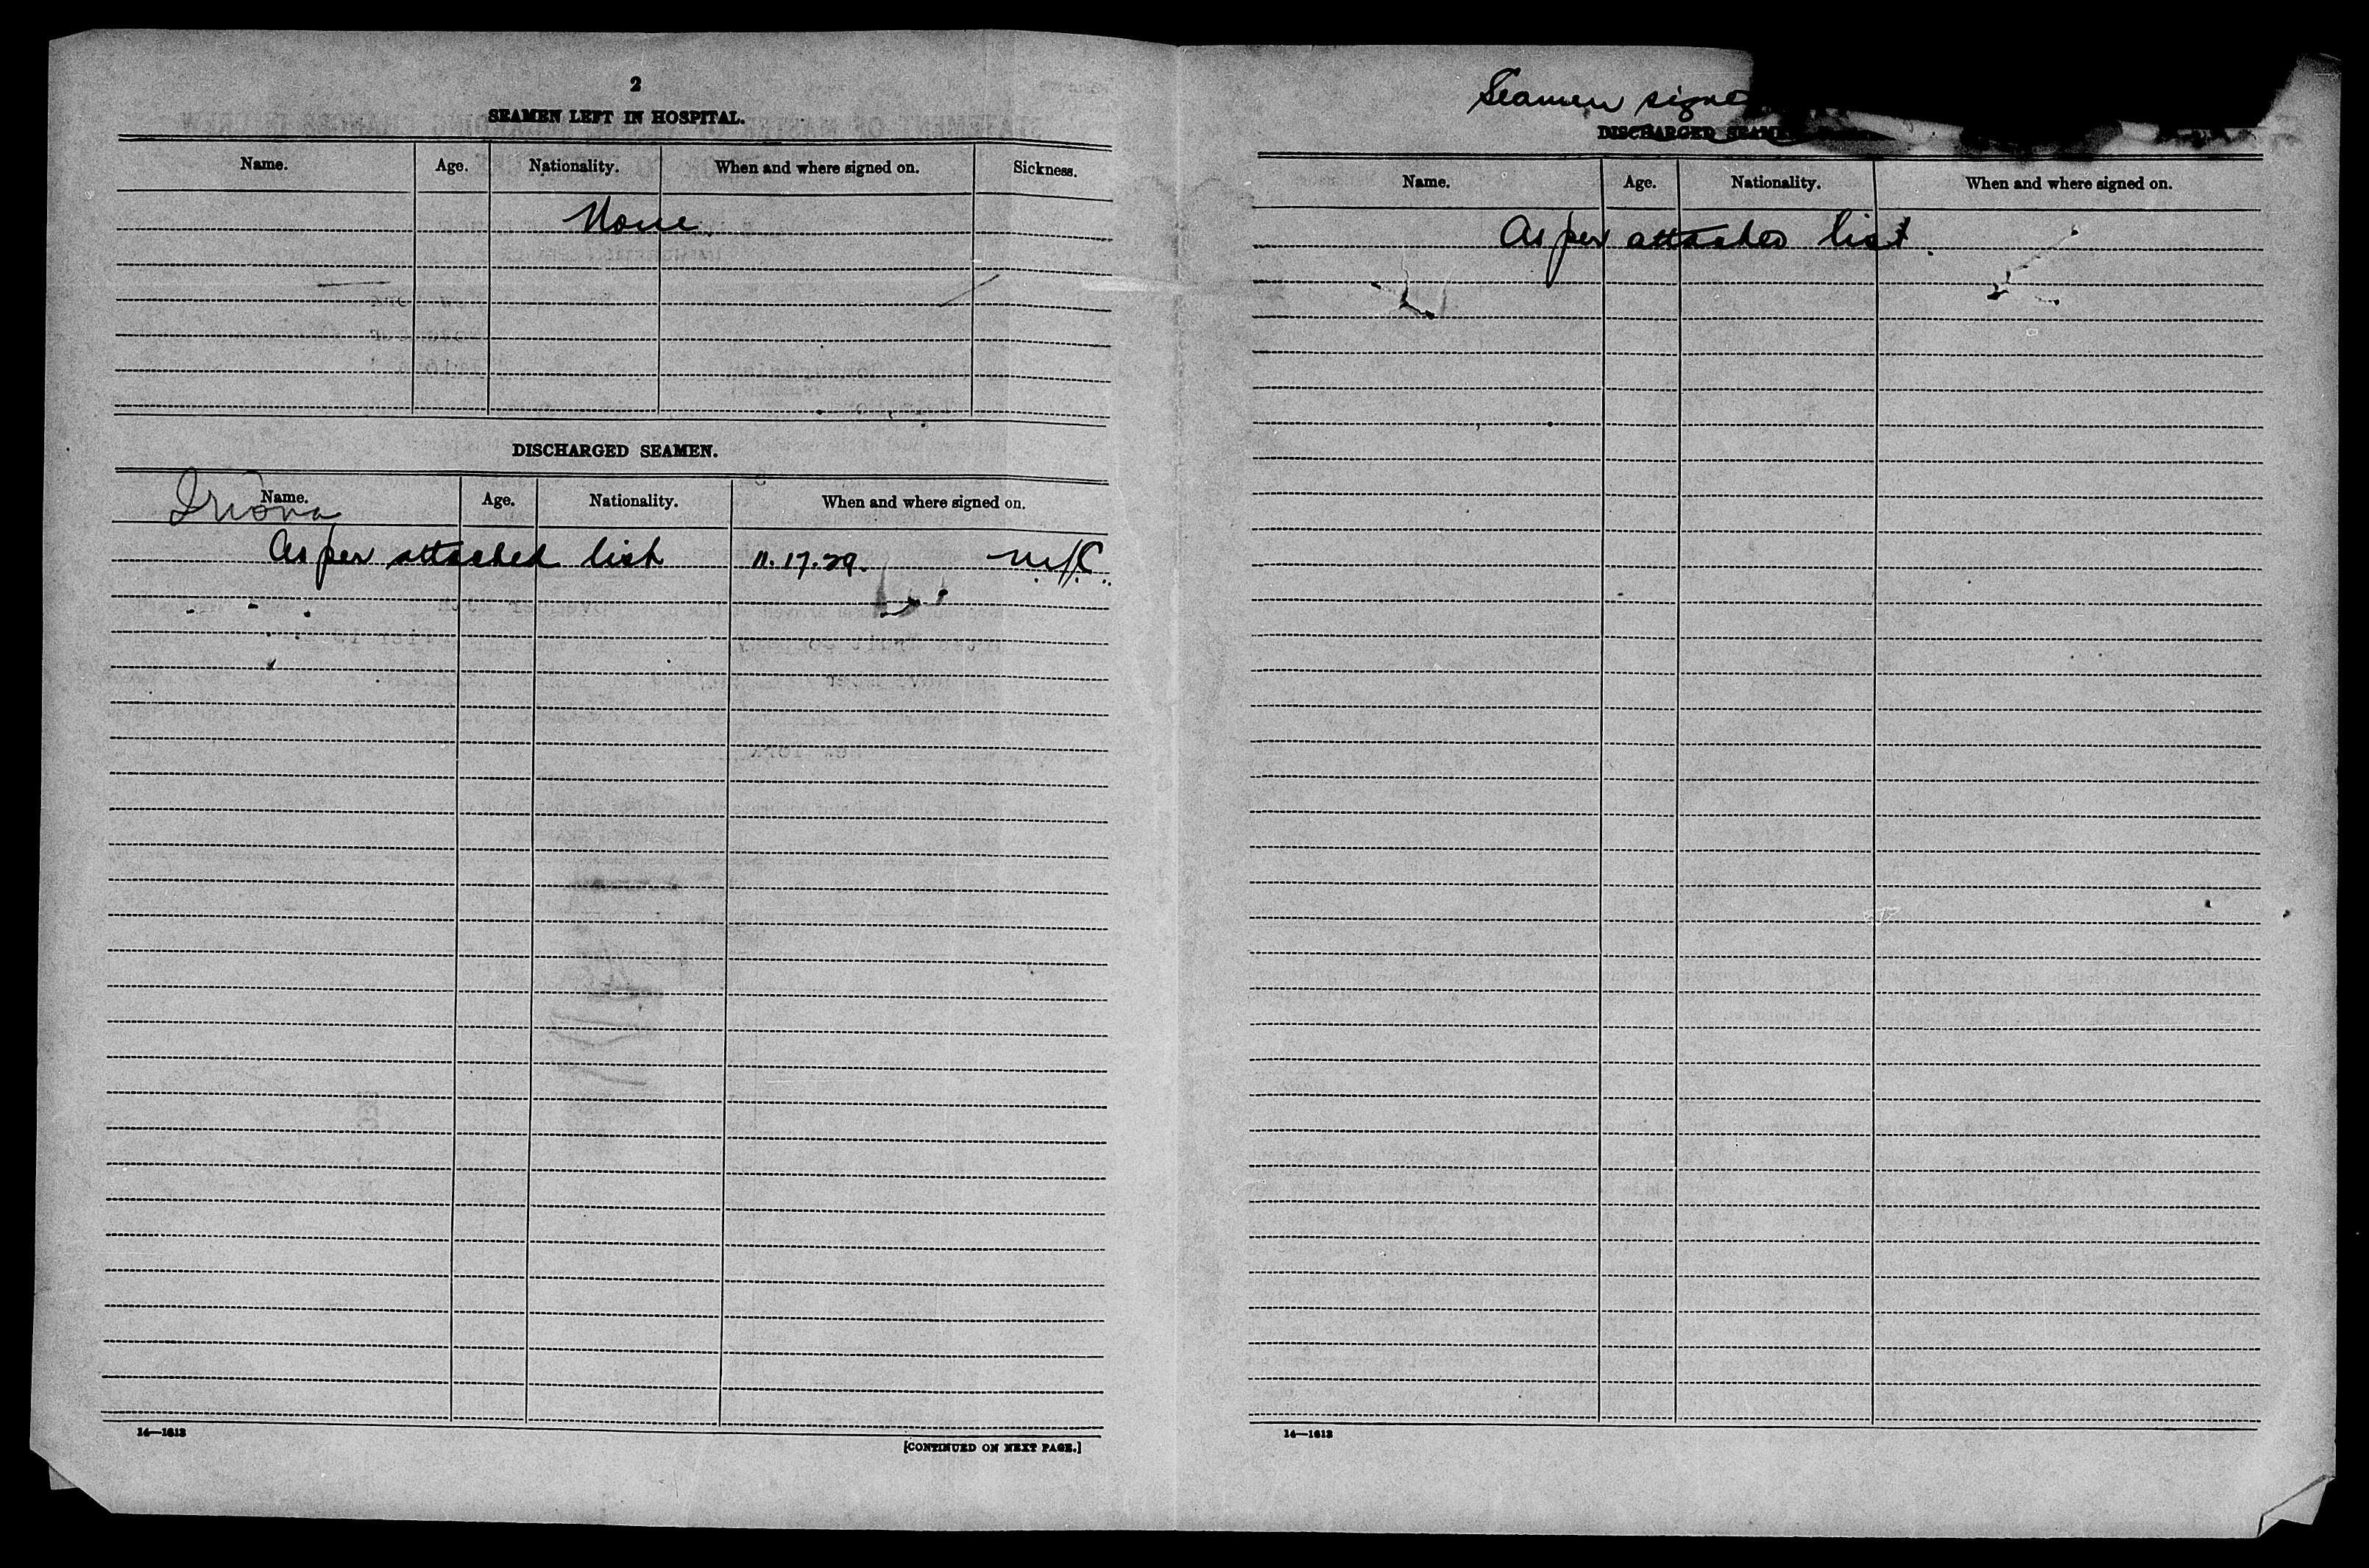 2
SEAMEN LEFT IN HOSPITAL.
Name. Age. Nationality. When and where signed on. Sickness.
None
DISCHARGED SEAMEN.
Iriona
Name. Age. Nationality. When and where signed on.
As per attached list 11.17.29.
14—1613
[CONTINUED ON NEXT PAGE.]
Seamen signe
DISCHARGED SEAM
Name. Age. Nationality. When and where signed on.
As per attached list.
14—1613